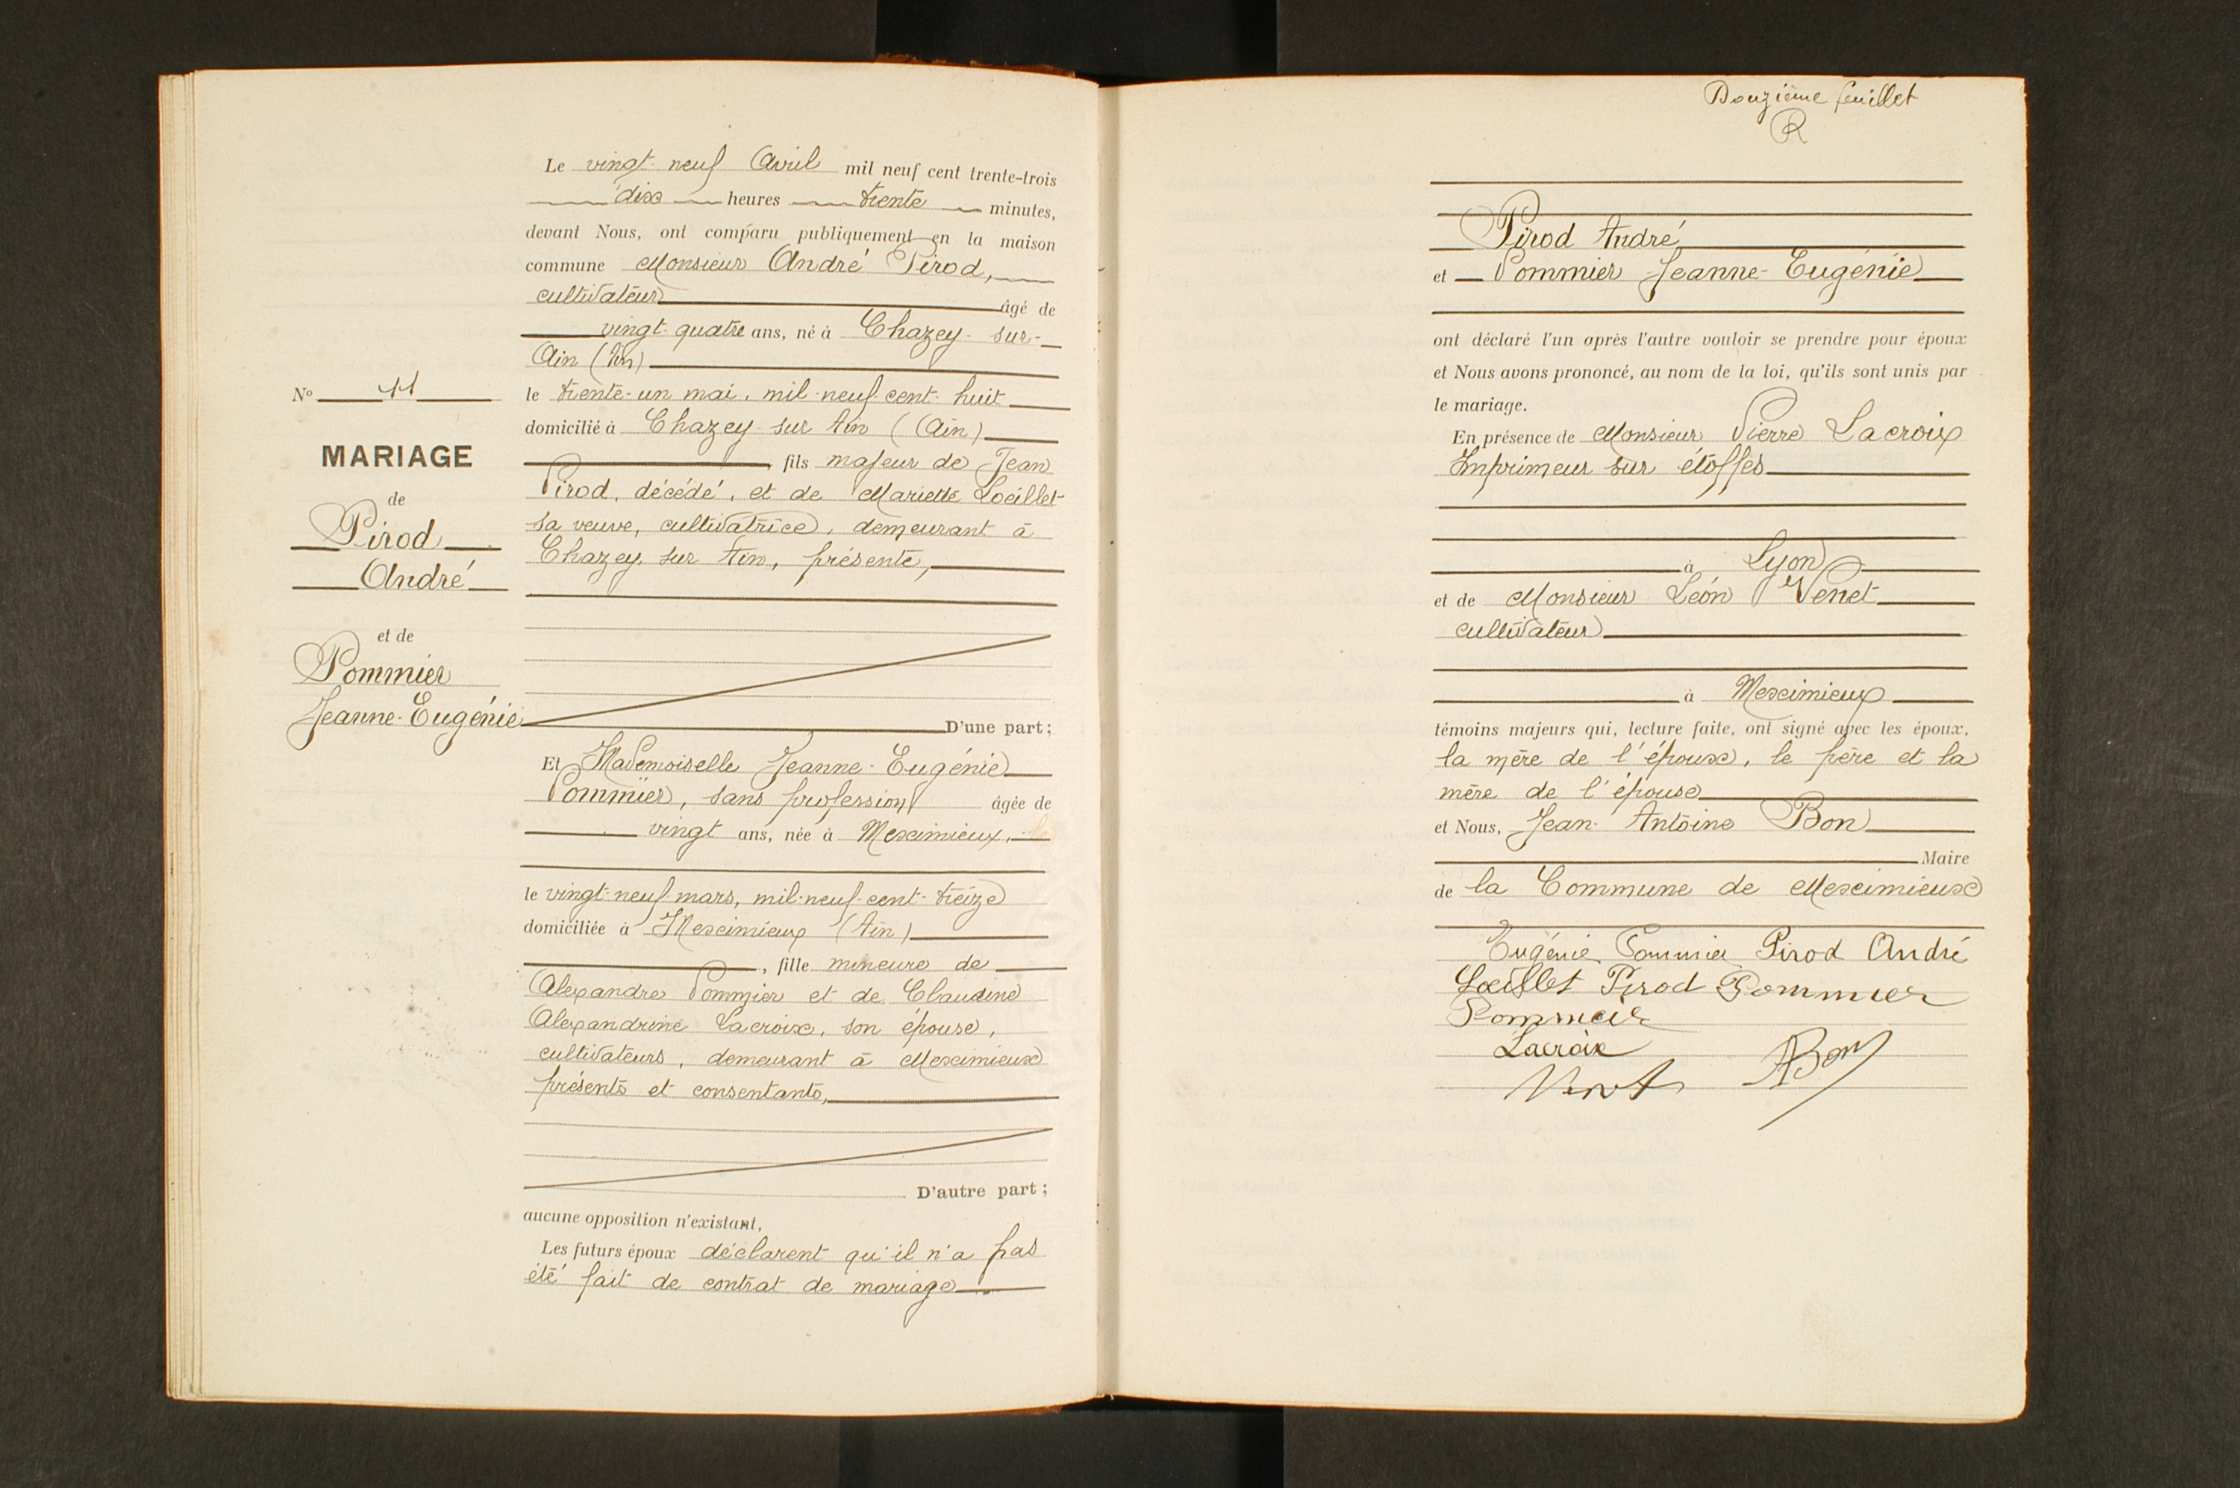 Le vingt-neuf Avril mil neuf cent trente-trois
dix heures trente minutes,
devant Nous, ont comparu publiquement en la maison
commune Monsieur André Pirod,
cultivateur âgé de
vingt-quatre ans, né à Chazey-sur-
Ain (Ain)
N° 11
le trente-un mai, mil-neuf-cent-huit
domicilié à Chazey-sur Ain (Ain)
MARIAGE
fils majeur de Jean
de
Pirod, décédé, et de Mariette Loeillet
Pirod
sa veuve, cultivatrice, demeurant à
André
Chazey-sur Ain, présente,
et de
Pommier
Jeanne-Eugénie
D'une part;
Et Mademoiselle Jeanne-Eugénie
Pommier, sans profession âgée de
vingt ans, née à Meximieux,
le vingt-neuf mars, mil-neuf-cent-treize
domiciliée à Meximieux (Ain)
, fille mineure de
Alexandre Pommier et de Claudine
Alexandrine Lacroix, son épouse,
cultivateurs, demeurant à Meximieux
présents et consentants,
D'autre part;
aucune opposition n'existant,
Les futurs époux déclarent qu'il n'a pas
été fait de contrat de mariage
Douzième feuillet
R
Pirod André
et Pommier Jeanne-Eugénie
ont déclaré l'un après l'autre vouloir se prendre pour époux
et Nous avons prononcé, au nom de la loi, qu'ils sont unis par
le mariage.
En présence de Monsieur Pierre Lacroix
Imprimeur sur étoffes
à Lyon
et de Monsieur Léon Venet
cultivateur
à Meximieux
témoins majeurs qui, lecture faite, ont signé avec les époux,
la mère de l'époux, le père et la
mère de l'épouse
et Nous, Jean-Antoine Bon
Maire
de la Commune de Meximieux
Eugénie Pommier Pirod André
Loeillet Pirod Pommier
Pommier
Lacroix
Venet ABon